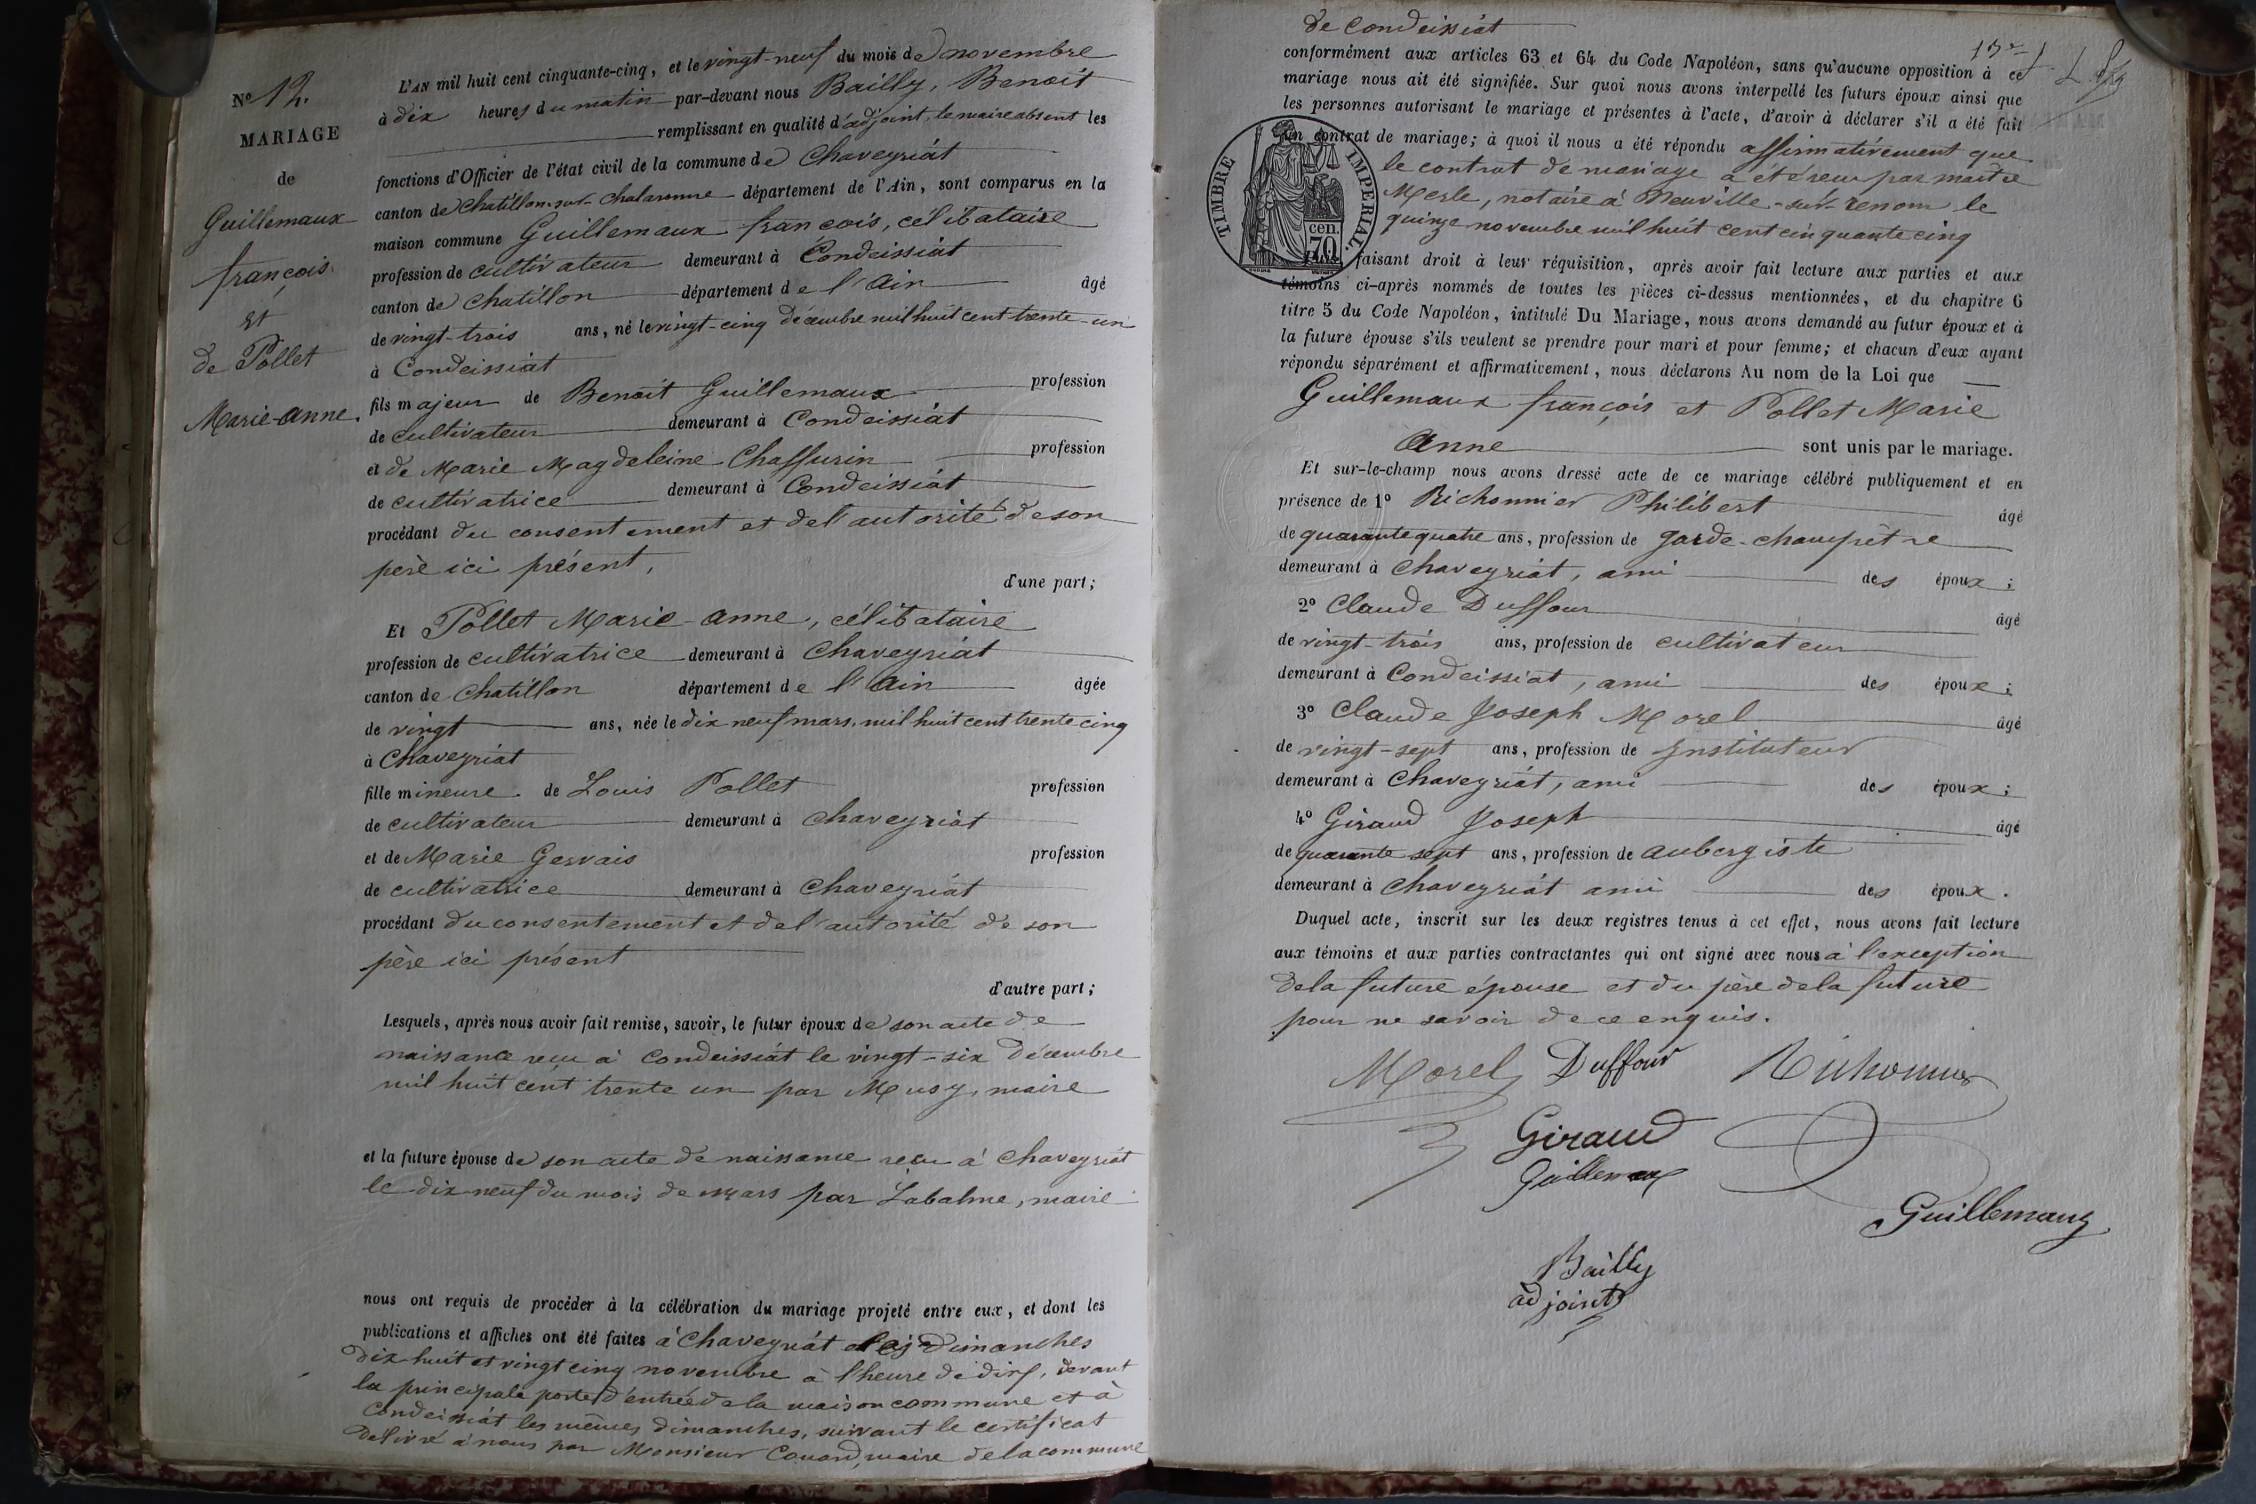 N° 12.
MARIAGE
de
Guillemaux
françois
et
de Pollet
Marie-anne.
L'AN mil huit cent cinquante-cinq, et le vingt-neuf du mois de novembre
à dix heures du matin par-devant nous Bailly, Benoit
remplissant en qualité d'adjoint, le maire absent les
fonctions d'Officier de l'état civil de la commune de Chaveyriat
canton de Chatillon-sur-Chalaronne département de l'Ain, sont comparus en la
maison commune Guillemaux françois, célibataire
profession de cultivateur demeurant à Condeissiat
canton de Chatillon département de l'Ain âgé
de vingt-trois ans, né le vingt-cinq décembre mil huit cent trente-un
à Condeissiat
fils majeur de Benoit Guillemaux profession
de cultivateur demeurant à Condeissiat
et de Marie Magdeleine Chaffurin profession
de cultivatrice demeurant à Condeissiat
procédant du consentement et de l'autorité de son
père ici présent,
d'une part;
Et Pollet Marie-anne, célibataire
profession de cultivatrice demeurant à Chaveyriat
canton de Chatillon département de l'Ain âgée
de vingt ans, née le dix neuf mars, mil huit cent trente cinq
à Chaveyriat
fille mineure de Louis Pollet profession
de cultivateur demeurant à Chaveyriat
et de Marie Gervais profession
de cultivatrice demeurant à Chaveyriat
procédant du consentement et de l'autorité de son
père ici présent
d'autre part;
Lesquels, après nous avoir fait remise, savoir, le futur époux de son acte de
naissance reçu à Condeissiat le vingt-six décembre
mil huit cent trente un par Musy, maire
et la future épouse de son acte de naissance reçu à Chaveyriat
le dix neuf du mois de mars par Labalme, maire
nous ont requis de procéder à la célébration du mariage projeté entre eux, et dont les
publications et affiches ont été faites à Chaveyriat les dimanches
dix huit et vingt cinq novembre à l'heure de dix, devant
la principale porte d'entrée de la maison commune et à
Condeissiat les mêmes dimanches, suivant le certificat
délivré à nous par Monsieur Couard, maire de la commune
de Condeissiat
conformément aux articles 63 et 64 du Code Napoléon, sans qu'aucune opposition à ce
mariage nous ait été signifiée. Sur quoi nous avons interpellé les futurs époux ainsi que
les personnes autorisant le mariage et présentes à l'acte, d'avoir à déclarer s'il a été fait
un contrat de mariage; à quoi il nous a été répondu affirmativement que
le contrat de mariage a été reçu par maître
Merle, notaire à Neuville-sur-Renom le
quinze novembre mil huit cent cinquante cinq
TIMBRE IMPÉRIAL.
cen.
70
faisant droit à leur réquisition, après avoir fait lecture aux parties et aux
témoins ci-après nommés de toutes les pièces ci-dessus mentionnées, et du chapitre 6
titre 5 du Code Napoléon, intitulé Du Mariage, nous avons demandé au futur époux et à
la future épouse s'ils veulent se prendre pour mari et pour femme; et chacun d'eux ayant
répondu séparément et affirmativement, nous déclarons Au nom de la Loi que
Guillemaux françois et Pollet Marie
Anne sont unis par le mariage.
Et sur-le-champ nous avons dressé acte de ce mariage célébré publiquement et en
présence de 1° Richonnier Philibert âgé
de quarante quatre ans, profession de garde-champêtre
demeurant à Chaveyriat, ami des époux;
2° Claude Duffour âgé
de vingt-trois ans, profession de cultivateur
demeurant à Condeissiat, ami des époux;
3° Claude Joseph Morel âgé
de vingt-sept ans, profession de Instituteur
demeurant à Chaveyriat, ami des époux;
4° Giraud Joseph âgé
de quarante sept ans, profession de aubergiste
demeurant à Chaveyriat ami des époux.
Duquel acte, inscrit sur les deux registres tenus à cet effet, nous avons fait lecture
aux témoins et aux parties contractantes qui ont signé avec nous à l'exception
de la future épouse et du père de la future
pour ne savoir de ce enquis.
Morel Duffour Richonnier
Giraud
Guillemaux
Guillemaux
Bailly
adjoint